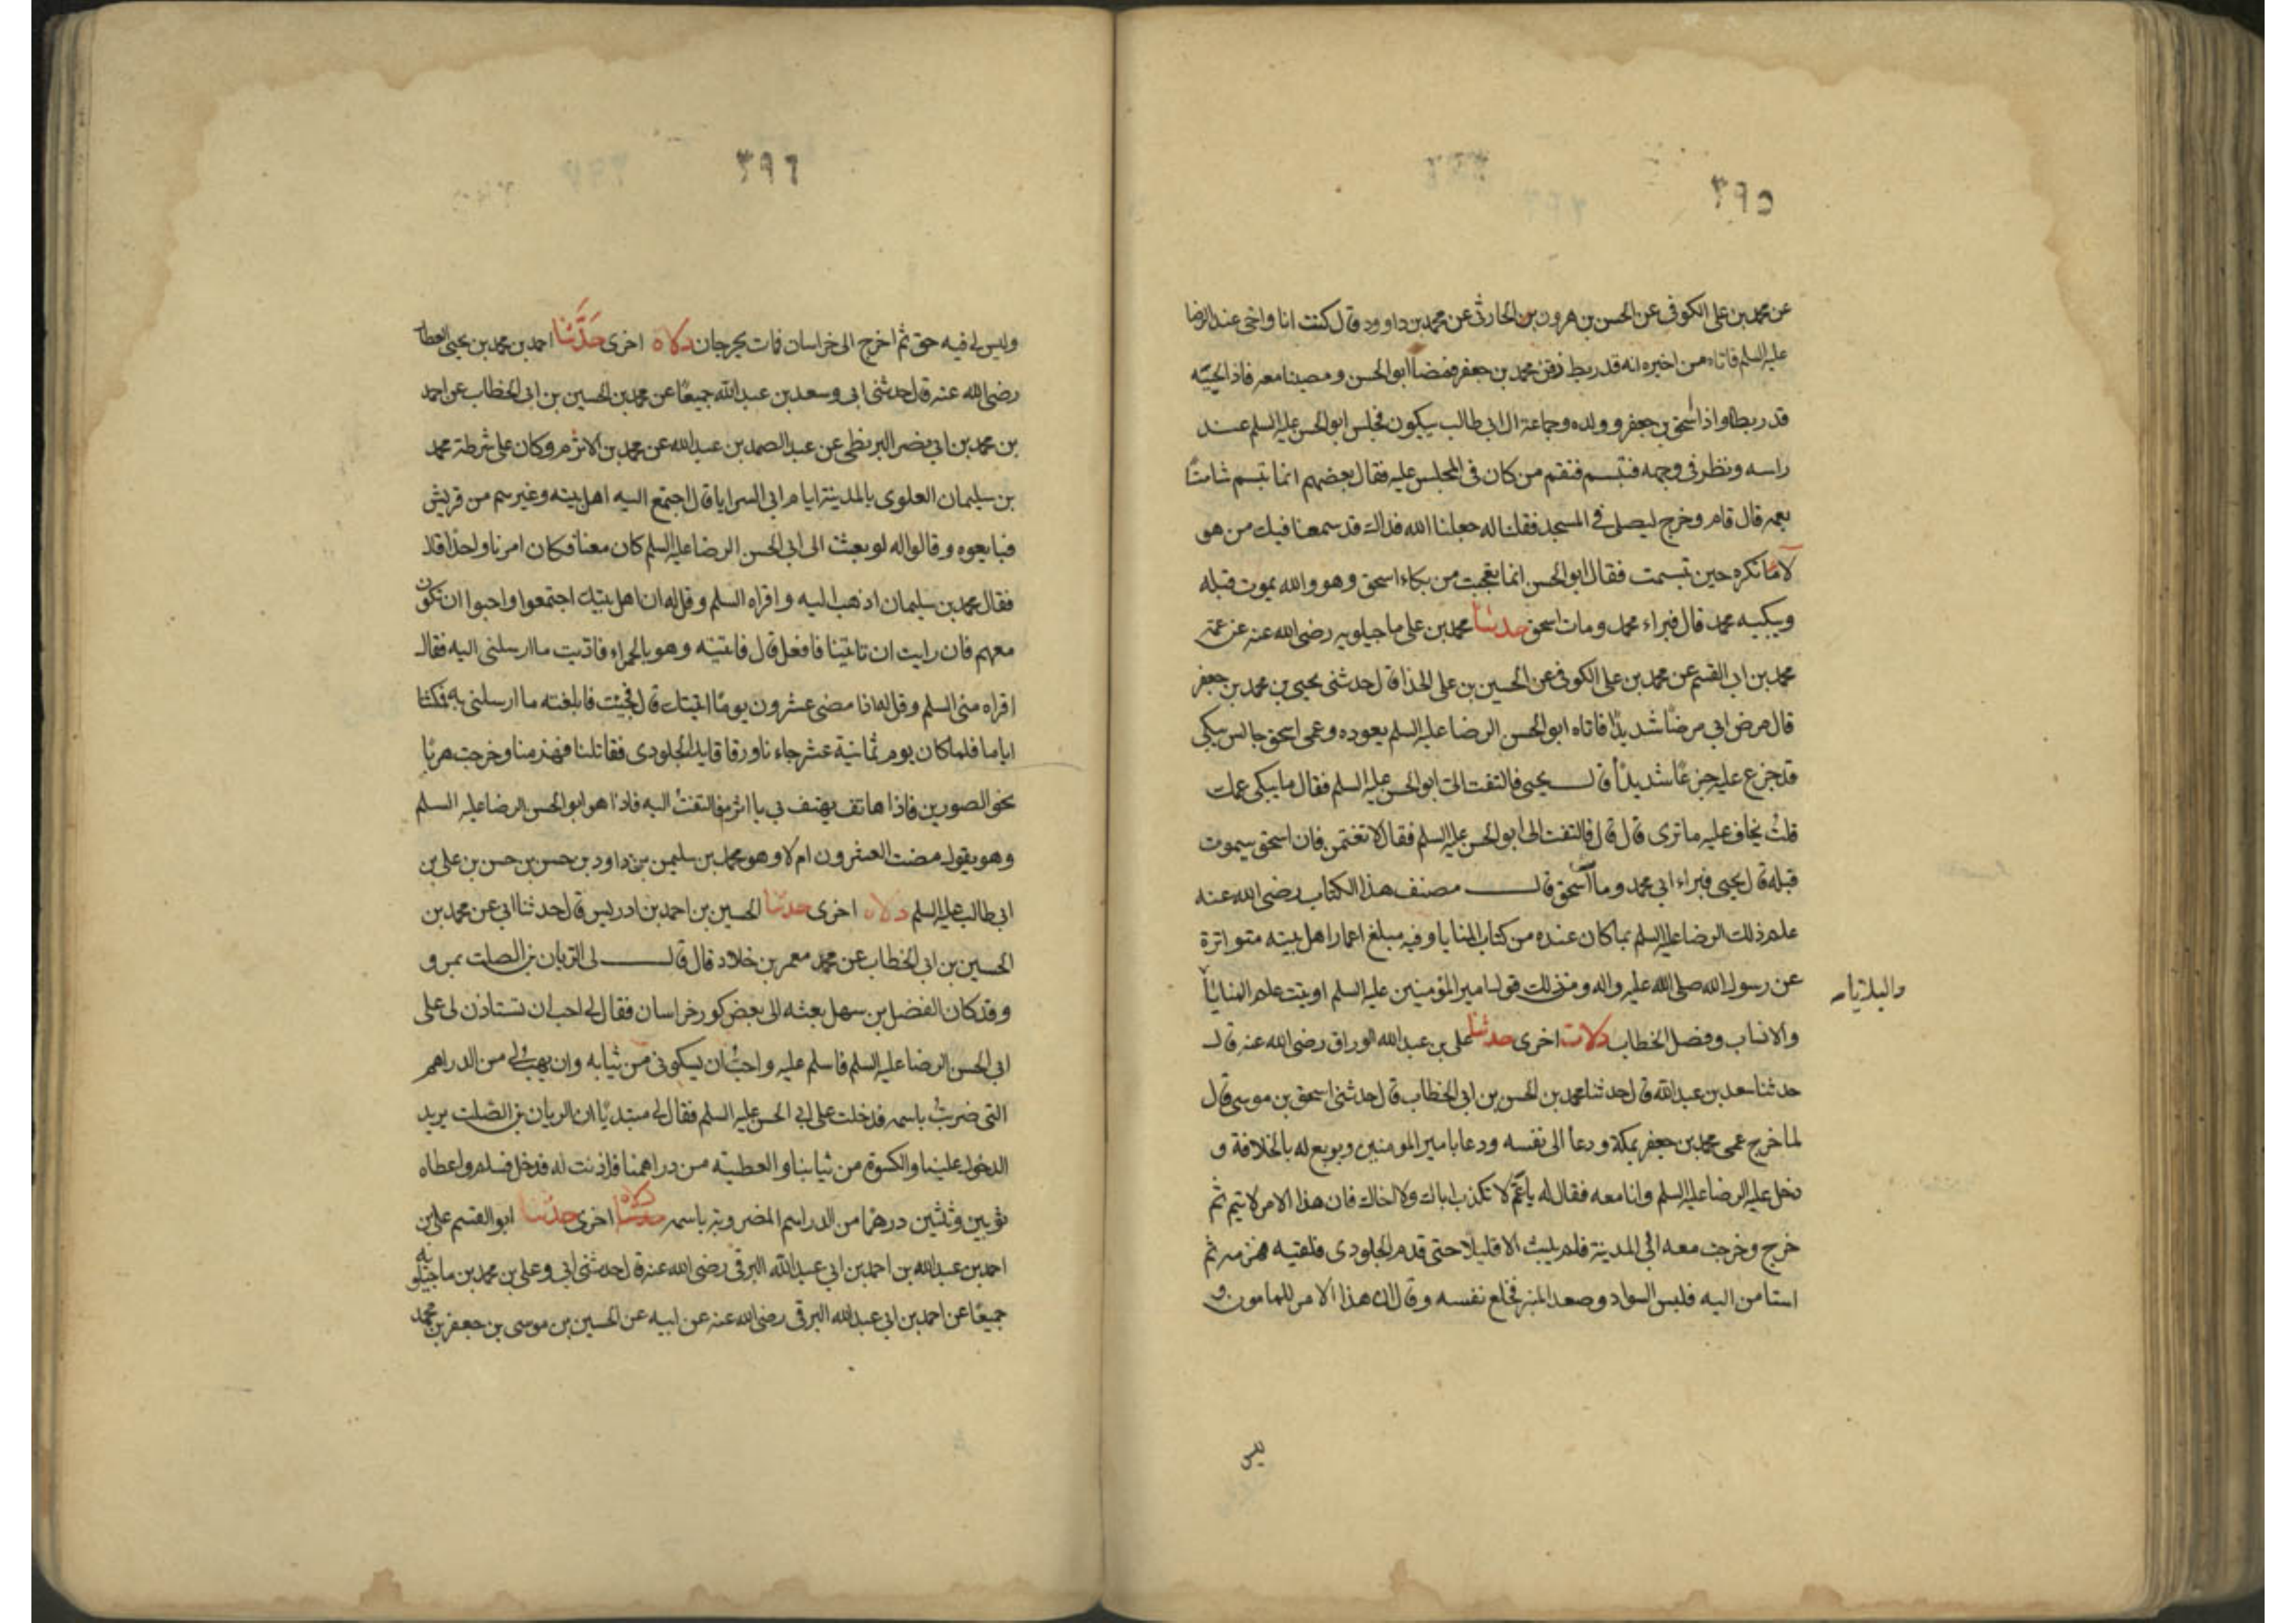 ٣٩٥
عن محمد بن على الكوفى عن الحسن بن هرون بن الحارثى عن محمد بن داوود قال كنت انا واخى عند الرضا
عليه السلم فاتاه من اخبره انه قد ربط ذقن محمد بن جعفر فمضا ابو الحسن ومضينا معه فاذا لحييه
قد ربطا واذا اسحق بن جعفر وولده وجماعة ال ابى طالب يبكون فجلس ابو الحسن عليه السلم عند
راسه ونظر فى وجهه فتبسم فنقم من كان فى المجلس عليه فقال بعضهم انما تبسم شامتًا
بعمه قال قام وخرج ليصلى فى المسجد فقلنا له جعلنا الله فداك قد سمعنا فيك من هو
لاما نكره حين تبسمت فقال ابو الحسن انما تعجبت من بكاء اسحق وهو والله يموت قبله
ويبكيه محمد قال فبراء محمد ومات اسحق حدثنا محمد بن على ماجيلويه رضى الله عنه عن عمه
محمد بن ابى القسم عن محمد بن على الكوفى عن الحسين بن على الحذا قال حدثنى يحيى بن محمد بن جعفر
قال مرض ابى مرضًا شديدًا فاتاه ابو الحسن الرضا عليه السلم يعوده وعمى اسحق جالس يبكى
قد جزع عليه جزعًا شديدًا قال يحيى فالتفت الى ابو الحسن عليه السلم فقال ما يبكى عمك
قلت يخاف عليه ما ترى قال قال فالتفت الى ابو الحسن عليه السلم فقال لا تغتمن فان اسحق سيموت
قبله قال يحيى فبراء ابى محمد ومات اسحق قال مصنف هذا الكتاب رضى الله عنه
علم ذلك الرضا عليه السلم بما كان عنده من كتاب المنايا وفيه مبلغ اعمار اهل بيته متواترة
عن رسول الله صلى الله عليه واله ومن ذلك قول امير المؤمنين عليه السلم اوتيت علم المنايا
والبلايا
والانساب وفصل الخطاب دلالة اخرى حدثنا على بن عبد الله الوراق رضى الله عنه قال
حدثنا سعد بن عبد الله قال حدثنا محمد بن الحسن بن ابى الخطاب قال حدثنى اسحق بن موسى قال
لما خرج عمى محمد بن جعفر بمكة ودعا الى نفسه ودعا بامير المومنين وبويع له بالخلافة و
دخل عليه الرضا عليه السلم وانا معه فقال له يا عمّ لا تكذب اباك ولا اخاك فان هذا الامر لا يتم ثم
خرج وخرجت معه الى المدينة فلم يلبث الا قليلا حتى قدم الجلودى فلقيه فهزمه ثم
استامن اليه فلبس السواد وصعد المنبر فخلع نفسه وقال ان هذا الامر للمامون و
ليس
٣٩٦
وليس لى فيه حق ثم اخرج الى خراسان فمات بجرجان دلالة اخرى حَدَّثنا احمد بن محمد بن يحيى العطار
رضى الله عنه قال حدثنى ابى وسعد بن عبد الله جميعًا عن محمد بن الحسين بن ابى الخطاب عن احمد
بن محمد بن ابى نصر البزنطى عن عبد الصمد بن عبيد الله عن محمد بن الاثرم وكان على شرطة محمد
بن سليمان العلوى بالمدينة ايام ابى السرايا قال اجتمع اليه اهل بيته وغيرهم من قريش
فبايعوه وقالوا له لو بعثت الى ابى الحسن الرضا عليه السلم كان معنا فكان امرنا واحدًا قال
فقال محمد بن سليمان اذهب اليه واقراه السلم وقل له ان اهل بيتك اجتمعوا واحبوا ان تكون
معهم فان رايت ان تاتينا فافعل قال فاتيته وهو بالحمراء فاديت ما ارسلنى اليه فقال
اقراه منى السلم وقل له اذا مضى عشرون يومًا اتيتك قال فجئت فابلغته ما ارسلنى به فمكثنا
اياما فلما كان يوم ثمانية عشر جاءنا ورقا قايد الجلودى فقاتلنا فهزمنا وخرجت هربًا
نحو الصورين فاذا هاتف يهتف بى يا اثرم فالتفتُ اليه فاذا هو ابو الحسن الرضا عليه السلم
وهو يقول مضت العشرون ام لا وهو محمد بن سليمن بن داود بن حسن بن حسن بن على بن
ابى طالب عليه السلم دلالة اخرى حدثنا الحسين بن احمد بن ادريس قال حدثنا ابى عن محمد بن
الحسين بن ابى الخطاب عن محمد معمر بن خلاد قال قال لى الريان بن الصلت بمرو
وقد كان الفضل بن سهل بعثه الى بعض كور خراسان فقال لى احب ان تستاذن لى على
ابى الحسن الرضا عليه السلم فاسلم عليه واحبُّ ان يكسونى من ثيابه وان يهب لى من الدراهم
التى ضربتُ باسمه فدخلت على ابى الحسن عليه السلم فقال لى مبتديًا ان الريان بن الصّلت يريد
الدخول علينا والكسوة من ثيابنا والعطية من دراهمنا فاذنت له فدخل فسلم واعطاه
ثوبين وثلثين درهمًا من الدراهم المضروبة باسمه حدثنا دلالة اخرى حدثنا ابو القسم على بن
احمد بن عبد الله بن احمد بن ابى عبد الله البرقى رضى الله عنه قال حدثنى ابى وعلى بن محمد بن ماجيلويه
جميعًا عن احمد بن ابى عبد الله البرقى رضى الله عنه عن ابيه عن الحسين بن موسى بن جعفر بن محمد